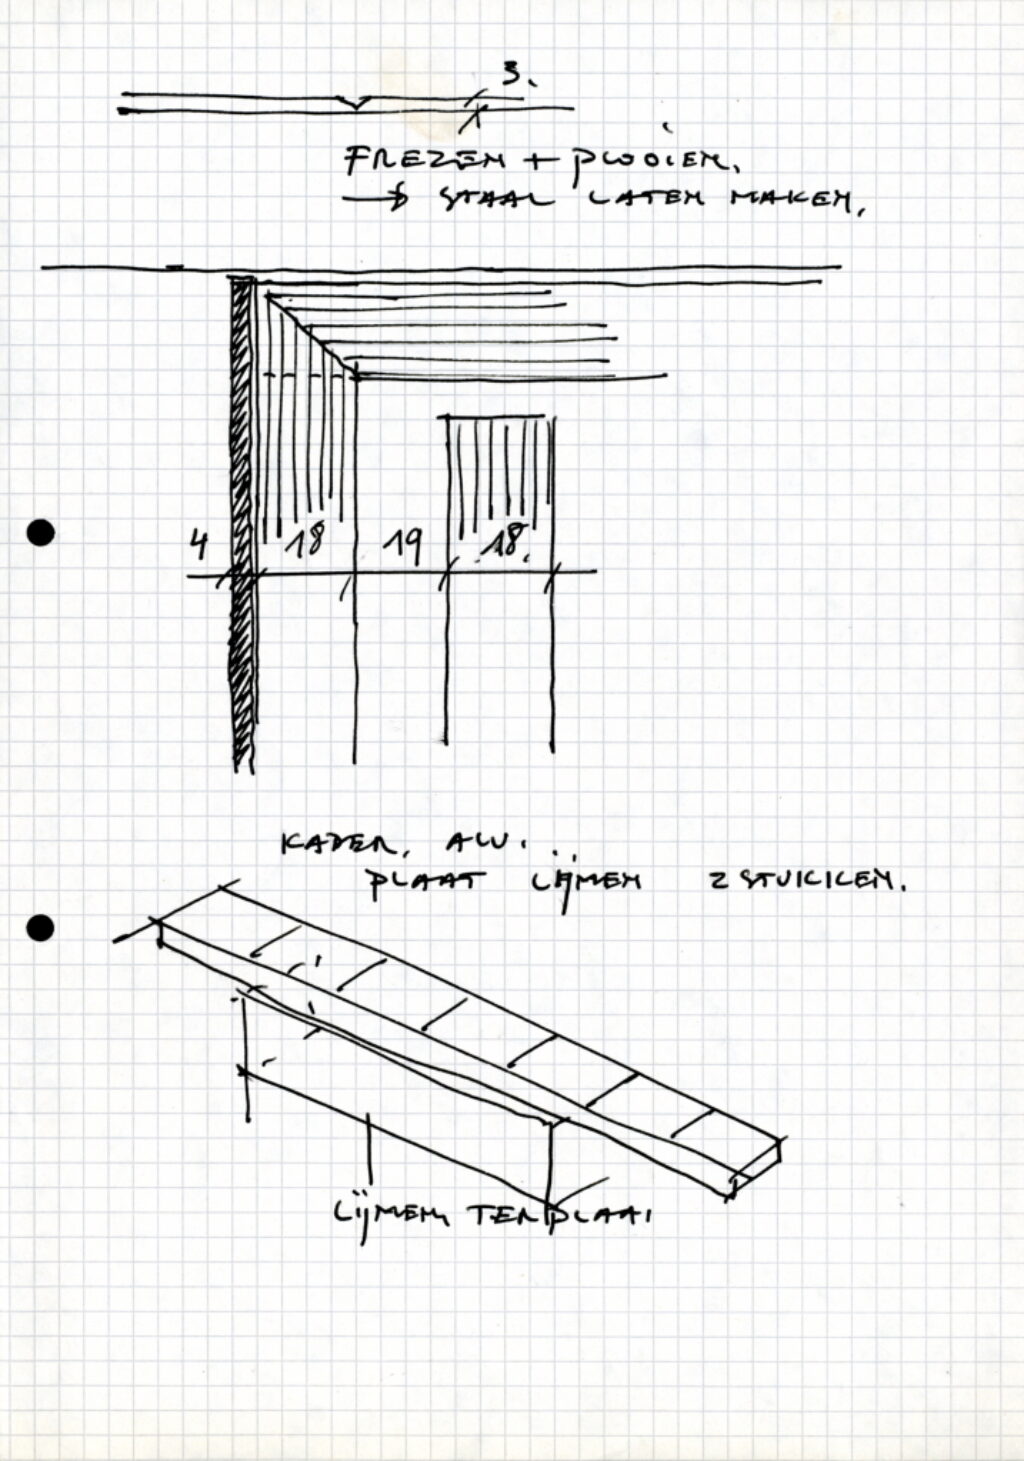 3.
FREZEN + PLOOIEN.
→ STAAL LATEN MAKEN.
4 18 19 18.
KADER. ALU.
PLAAT LIJMEN 2 STUKKEN.
LIJMEN TER PLAATS